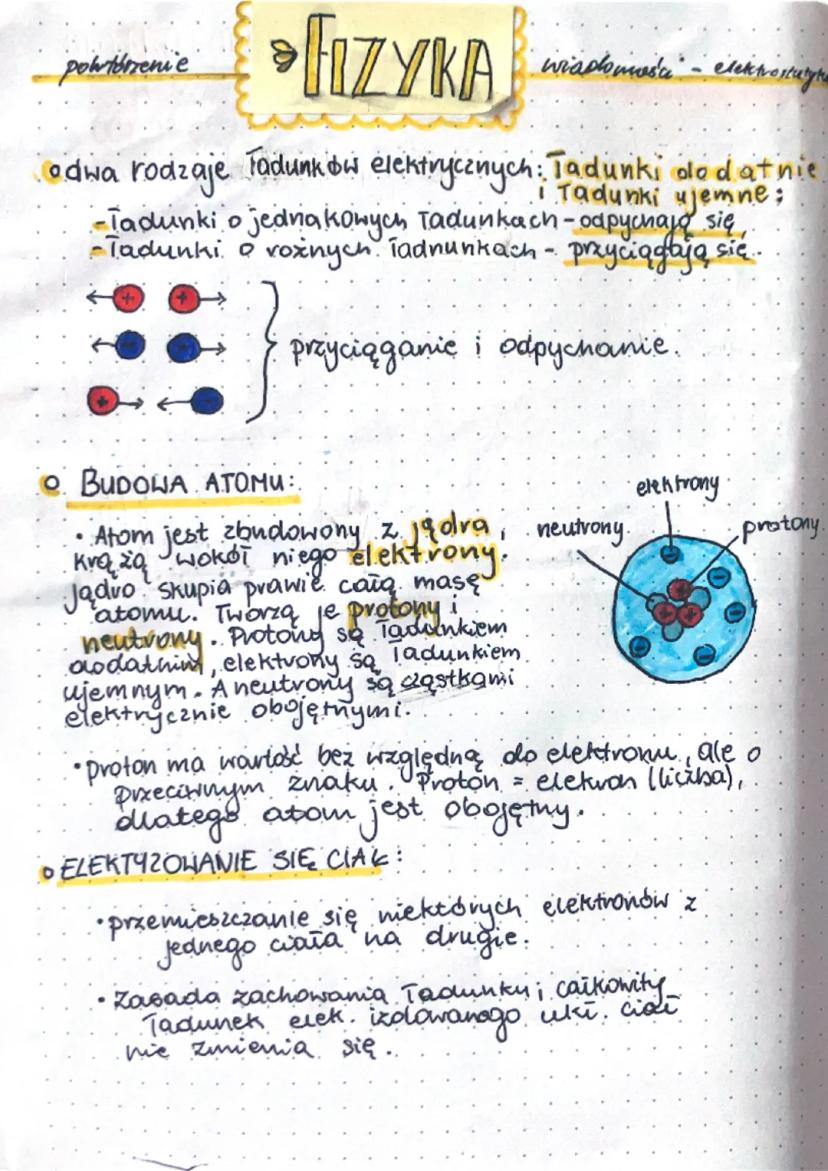 powtórzenie FIZYKA wiadomości - elektrostatyka
dwa rodzaje ładunków elektrycznych: ładunki dodatnie
i ładunki ujemne:
- ładunki o jednakowych ładunkach - odpychają się,
- ładunki o rożnych ładnunkach - przyciągają się.
+ +
- -
+ -
przyciąganie i odpychanie.
BUDOWA ATOMU:
elektrony
neutrony
protony
• Atom jest zbudowony z jądra,
krążą wokół niego elektrony.
Jądro skupia prawie całą masę
atomu. Tworzą je protony i
neutrony. Protony są ładunkiem
dodatnim, elektrony są ładunkiem
ujemnym. A neutrony są cząstkami
elektrycznie obojętnymi.
• Proton ma wartość bez względną do elektronu, ale o
przeciwnym znaku. Proton = elekron (liczba),
dlatego atom jest obojętny.
ELEKTYZOWANIE SIĘ CIAŁ:
• przemieszczanie się niektórych elektronów z
jednego ciała na drugie.
• Zasada zachowania ładunku; całkowity
ładunek elek. izolowanego ukł. ciał
nie zmienia się.